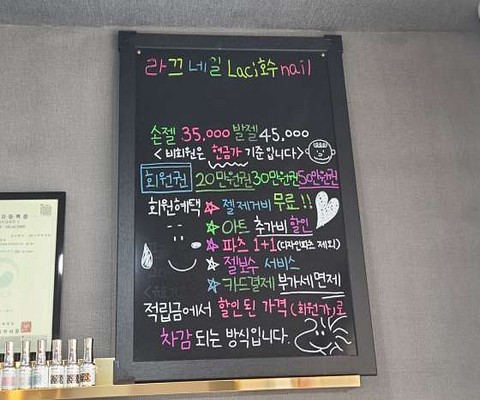 라끄네일 Laci호수nail
손젤 35,000 발젤 45,000
<비회원은 현금가 기준입니다>
회원권 20만원권 30만원권 50만원권
회원혜택 ☆ 젤제거비 무료!!
☆ 아트 추가비 할인
☆ 파츠 1+1 (디자인파츠 제외)
☆ 젤보수 서비스
☆ 카드결제 부가세면제
적립금에서 할인된 가격(회원가)로
차감되는 방식입니다.